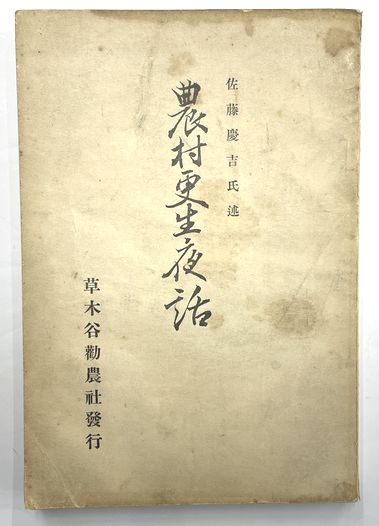 佐藤慶吉氏述
農村更生夜話
草木谷勸農社發行